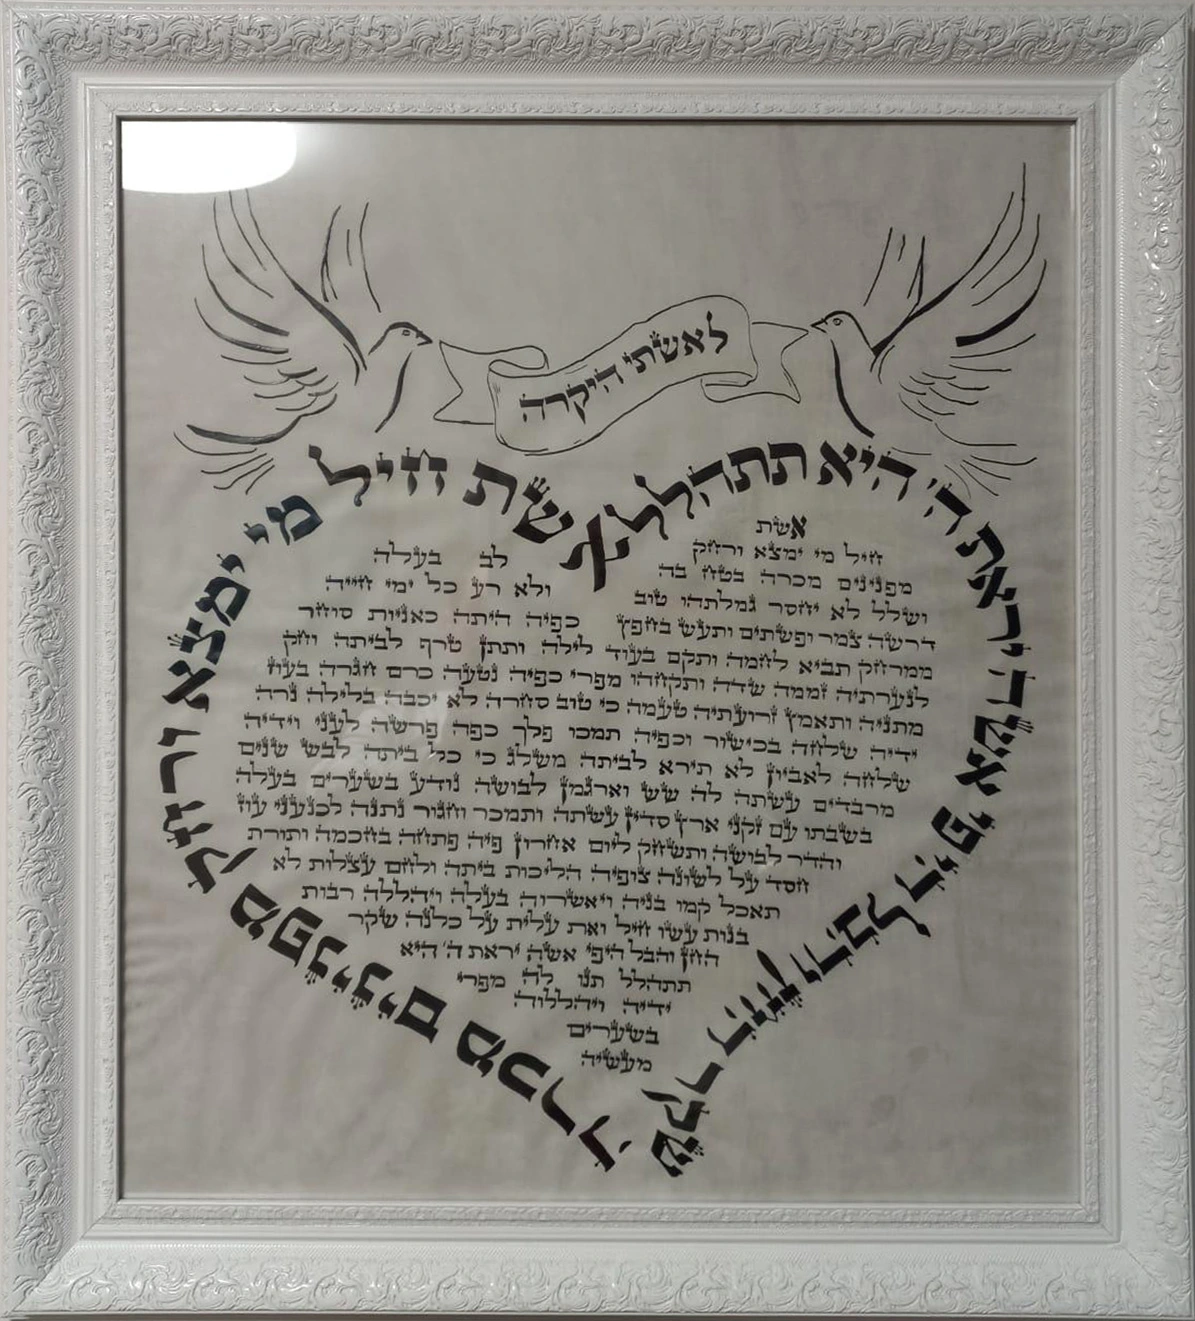 לאשתי היקרה
אשת חיל מי ימצא ורחק מפנינים מכרה
שקר החן והבל היפי אשה יראת ה' היא תתהלל
אשת
חיל מי ימצא ורחק
מפנינים מכרה בטח בה לב בעלה
ושלל לא יחסר גמלתהו טוב ולא רע כל ימי חייה
דרשה צמר ופשתים ותעש בחפץ כפיה היתה כאניות סוחר
ממרחק תביא לחמה ותקם בעוד לילה ותתן טרף לביתה וחק
לנערתיה זממה שדה ותקחהו מפרי כפיה נטעה כרם חגרה בעוז
מתניה ותאמץ זרועתיה טעמה כי טוב סחרה לא יכבה בלילה נרה
ידיה שלחה בכישור וכפיה תמכו פלך כפה פרשה לעני וידיה
שלחה לאביון לא תירא לביתה משלג כי כל ביתה לבש שנים
מרבדים עשתה לה שש וארגמן לבושה נודע בשערים בעלה
בשבתו עם זקני ארץ סדין עשתה ותמכר וחגור נתנה לכנעני עוז
והדר לבושה ותשחק ליום אחרון פיה פתחה בחכמה ותורת
חסד על לשונה צופיה הליכות ביתה ולחם עצלות לא
תאכל קמו בניה ויאשרוה בעלה ויהללה רבות
בנות עשו חיל ואת עלית על כלנה שקר
החן והבל היפי אשה יראת ה' היא
תתהלל תנו לה מפרי
ידיה ויהללוה
בשערים
מעשיה